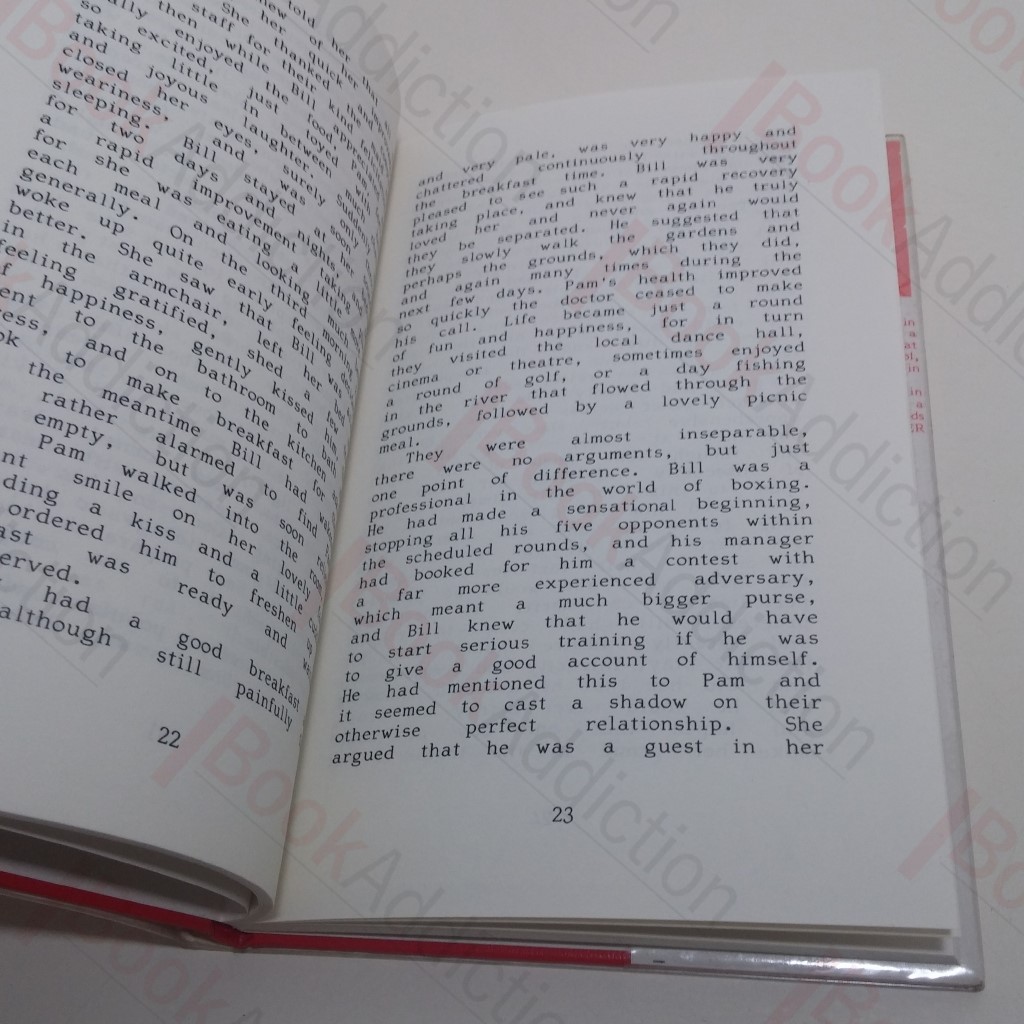 so excited,
taking little just
and joyous in
closed her laughter
weariness, eyes, and surely
sleeping. Bill was
for two days stayed
a rapid improvement
for she was eating
each meal and looking
generally. On the third
woke up quite early
better. She saw that
in the armchair,
feeling gratified, left
happiness, she gently kissed
to the bathroom
and on to the kitchen
to make breakfast for
the meantime Bill had
rather alarmed to find
empty, but was soon
Pam walked into the room
smile on her lovely
a kiss and a little
ordered him to freshen up
was ready and was
had a good breakfast
although still painfully
22
and very pale, was very happy and
chattered continuously throughout
the breakfast time. Bill was very
pleased to see such a rapid recovery
taking place, and knew that he truly
loved her and never again would
they be separated. He suggested that
they slowly walk the gardens and
perhaps the grounds, which they did,
and again many times during the
next few days. Pam's health improved
so quickly the doctor ceased to make
his call. Life became just a round
of fun and happiness, for in turn
they visited the local dance hall,
cinema or theatre, sometimes enjoyed
a round of golf, or a day fishing
in the river that flowed through the
grounds, followed by a lovely picnic
meal.
They were almost inseparable,
there were no arguments, but just
one point of difference. Bill was a
professional in the world of boxing.
He had made a sensational beginning,
stopping all his five opponents within
the scheduled rounds, and his manager
had booked for him a contest with
a far more experienced adversary,
which meant a much bigger purse,
and Bill knew that he would have
to start serious training if he was
to give a good account of himself.
He had mentioned this to Pam and
it seemed to cast a shadow on their
otherwise perfect relationship. She
argued that he was a guest in her
23
BookAddiction